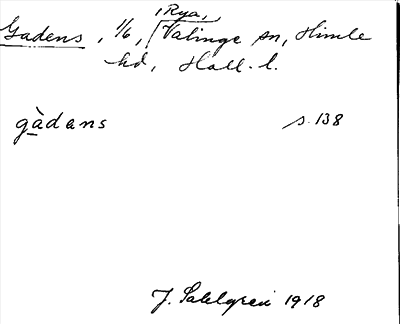 Rya,
Gadens, 1/6, Valinge sn, Himle
hd, Hall. l.
gàdans s. 138
J. Sahlgren 1918